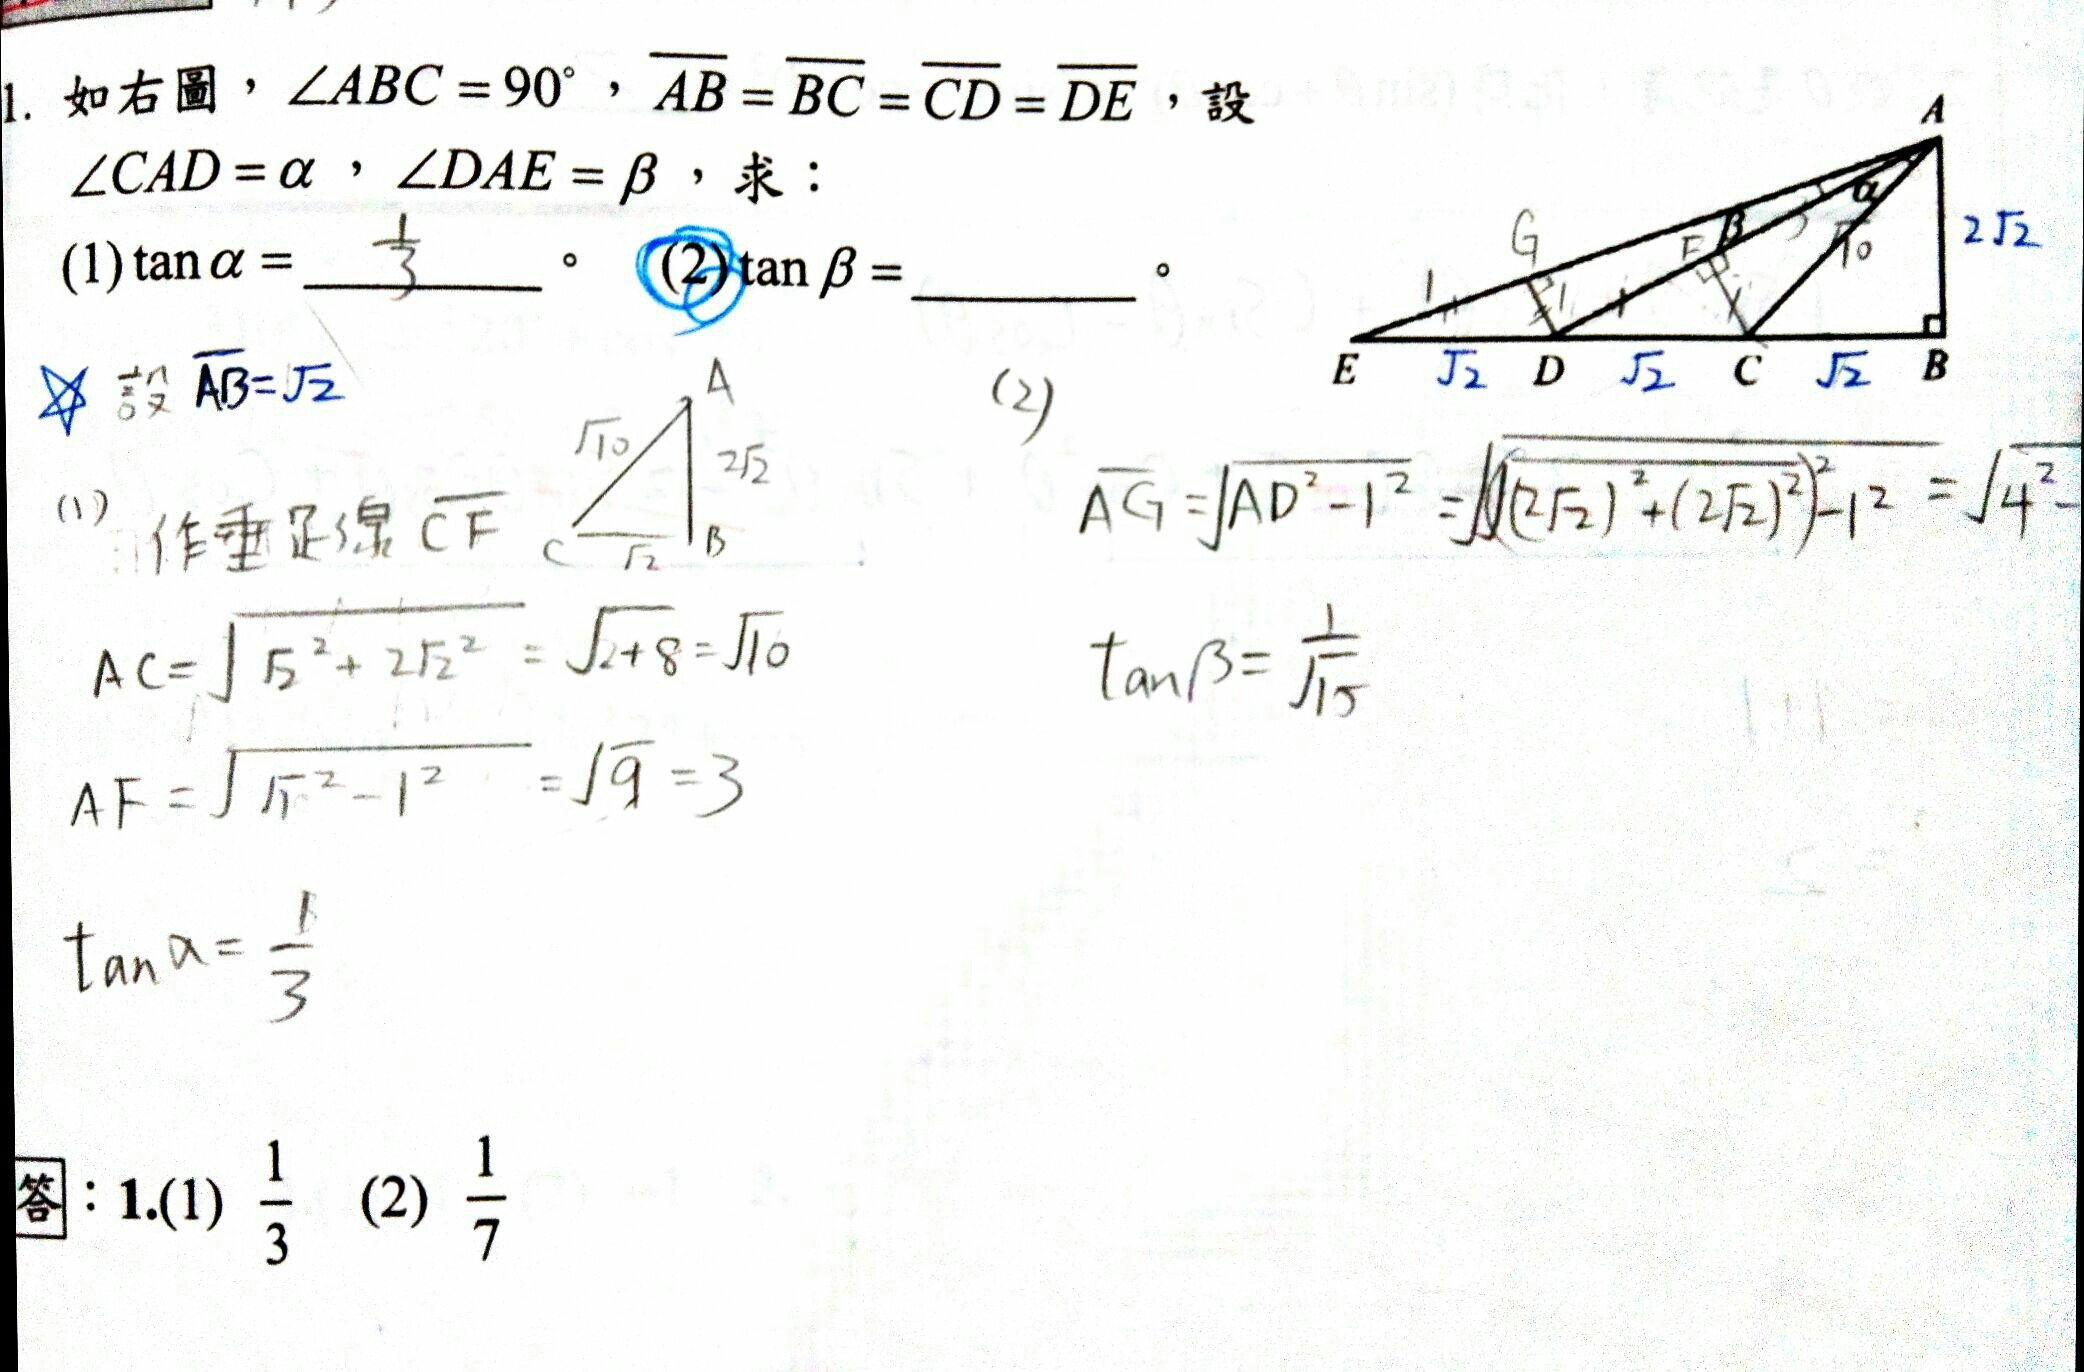 1. 如右圖，∠ABC = 90°，AB = BC = CD = DE，設
∠CAD = α，∠DAE = β，求：
(1) tan α = 1/3 。 (2) tan β = ______ 。
A
α
β
G
F
3
√10
2√2
1
1
1
1
E √2 D √2 C √2 B
☆ 設 AB = √2
(1) 作垂足線 CF
A
√10
2√2
C √2 B
AC = √(√2² + 2√2²) = √(2+8) = √10
AF = √(√1² - 1²) = √9 = 3
tan α = 1/3
(2)
AG = √(AD² - 1²) = √(√((2√2)² + (2√2)²)² - 1²) = √(4² -
tan β = 1/√15
答：1.(1) 1/3 (2) 1/7